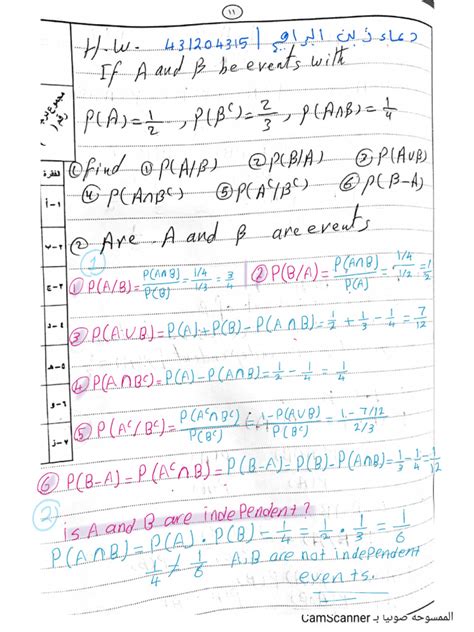 ١١
H.W. 431204315 | دعاء زبن الراجي
If A and B be events with
P(A)=1/2 , P(Bᶜ)=2/3 , P(A∩B)=1/4
① find ① P(A/B) ② P(B/A) ③ P(A∪B)
④ P(A∩Bᶜ) ⑤ P(Aᶜ/Bᶜ) ⑥ P(B-A)
② Are A and B are events
الفقرة
١-أ
٢-ب
٣-ج
٤-د
٥-هـ
٦-و
٧-ز
①
① P(A/B)=P(A∩B)/P(B)=1/4/1/3=3/4 ② P(B/A)=P(A∩B)/P(A)=1/4/1/2=1/2
③ P(A∪B)=P(A)+P(B)-P(A∩B)=1/2+1/3-1/4=7/12
④ P(A∩Bᶜ)=P(A)-P(A∩B)=1/2-1/4=1/4
⑤ P(Aᶜ/Bᶜ)=P(Aᶜ∩Bᶜ)/P(Bᶜ)=1-P(A∪B)/P(Bᶜ)=1-7/12/2/3
⑥ P(B-A)=P(Aᶜ∩B)=P(B-A)=P(B)-P(A∩B)=1/3-1/4=1/12
②
is A and B are independent?
P(A∩B)=P(A).P(B)=1/4=1/2.1/3=1/6
1/4≠1/6 A,B are not independent
events.
الممسوحة ضوئيا بـ CamScanner